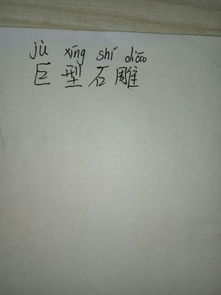 jù xíng shí diāo
巨型石雕